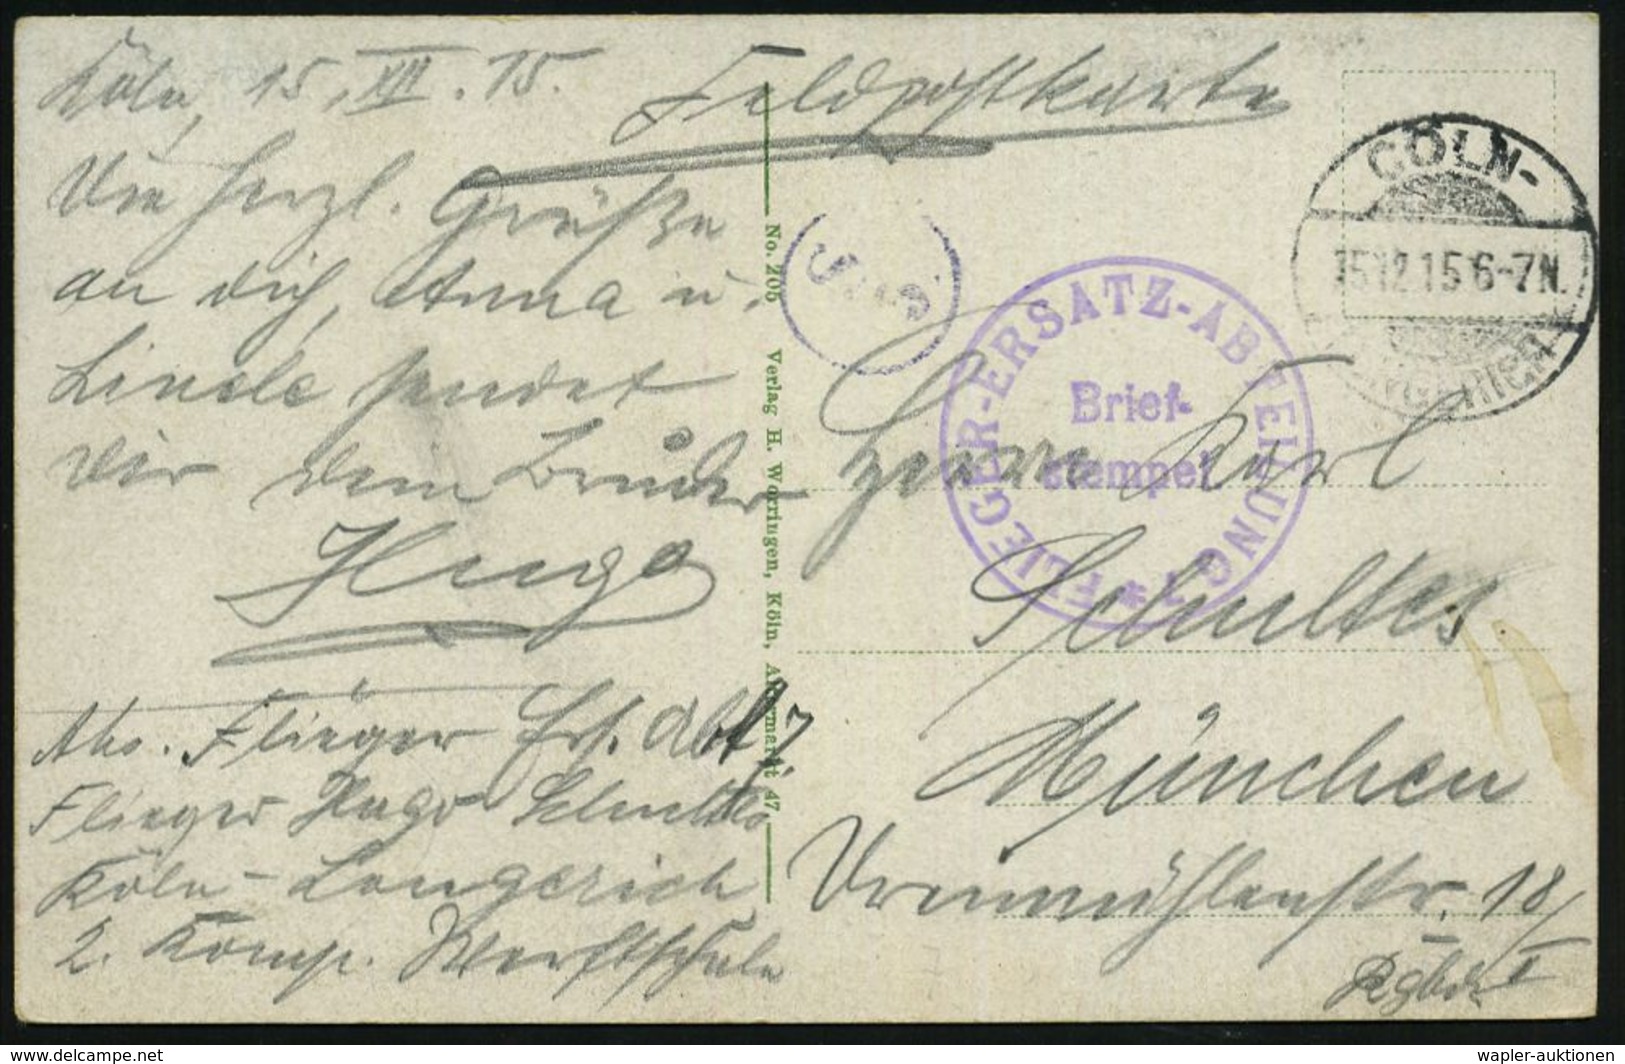 Köln, 15. XII. 15.
Feldpostkarte
Die herzl. Grüße
an dich, Anna u.
Linele sendet
dir dein Bruder
Hugo
Abs. Flieger Ers. Abt. 7.
Flieger Hugo Schultes
Köln-Longerich
2. Komp. Werftschule
No. 205 Verlag H. Worringen, Köln, Altermarkt 47
CÖLN-
15.12.15 6-7N.
LONGERICH
FLIEGER-ERSATZ-ABTEILUNG 7 *
Brief-
stempel.
Herrn Karl
Schultes
München
Dreimühlenstr. 18/I
Rgbd.
delcampe.net
wapler-auktionen